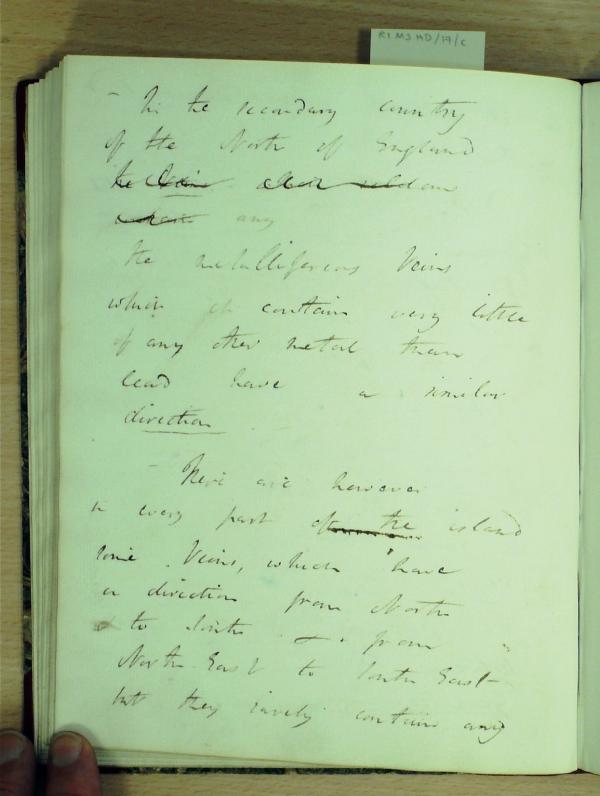 RI MS HD/17/C
- In the secondary country
of the North of England
the Veins seldom
any
the metalliferous Veins
which contain very little
of any other metal than
lead have a similar
direction
- There are however
in every part of the island
some Veins, which have
a direction from North
to South & from
North East to South East -
but they rarely contain any